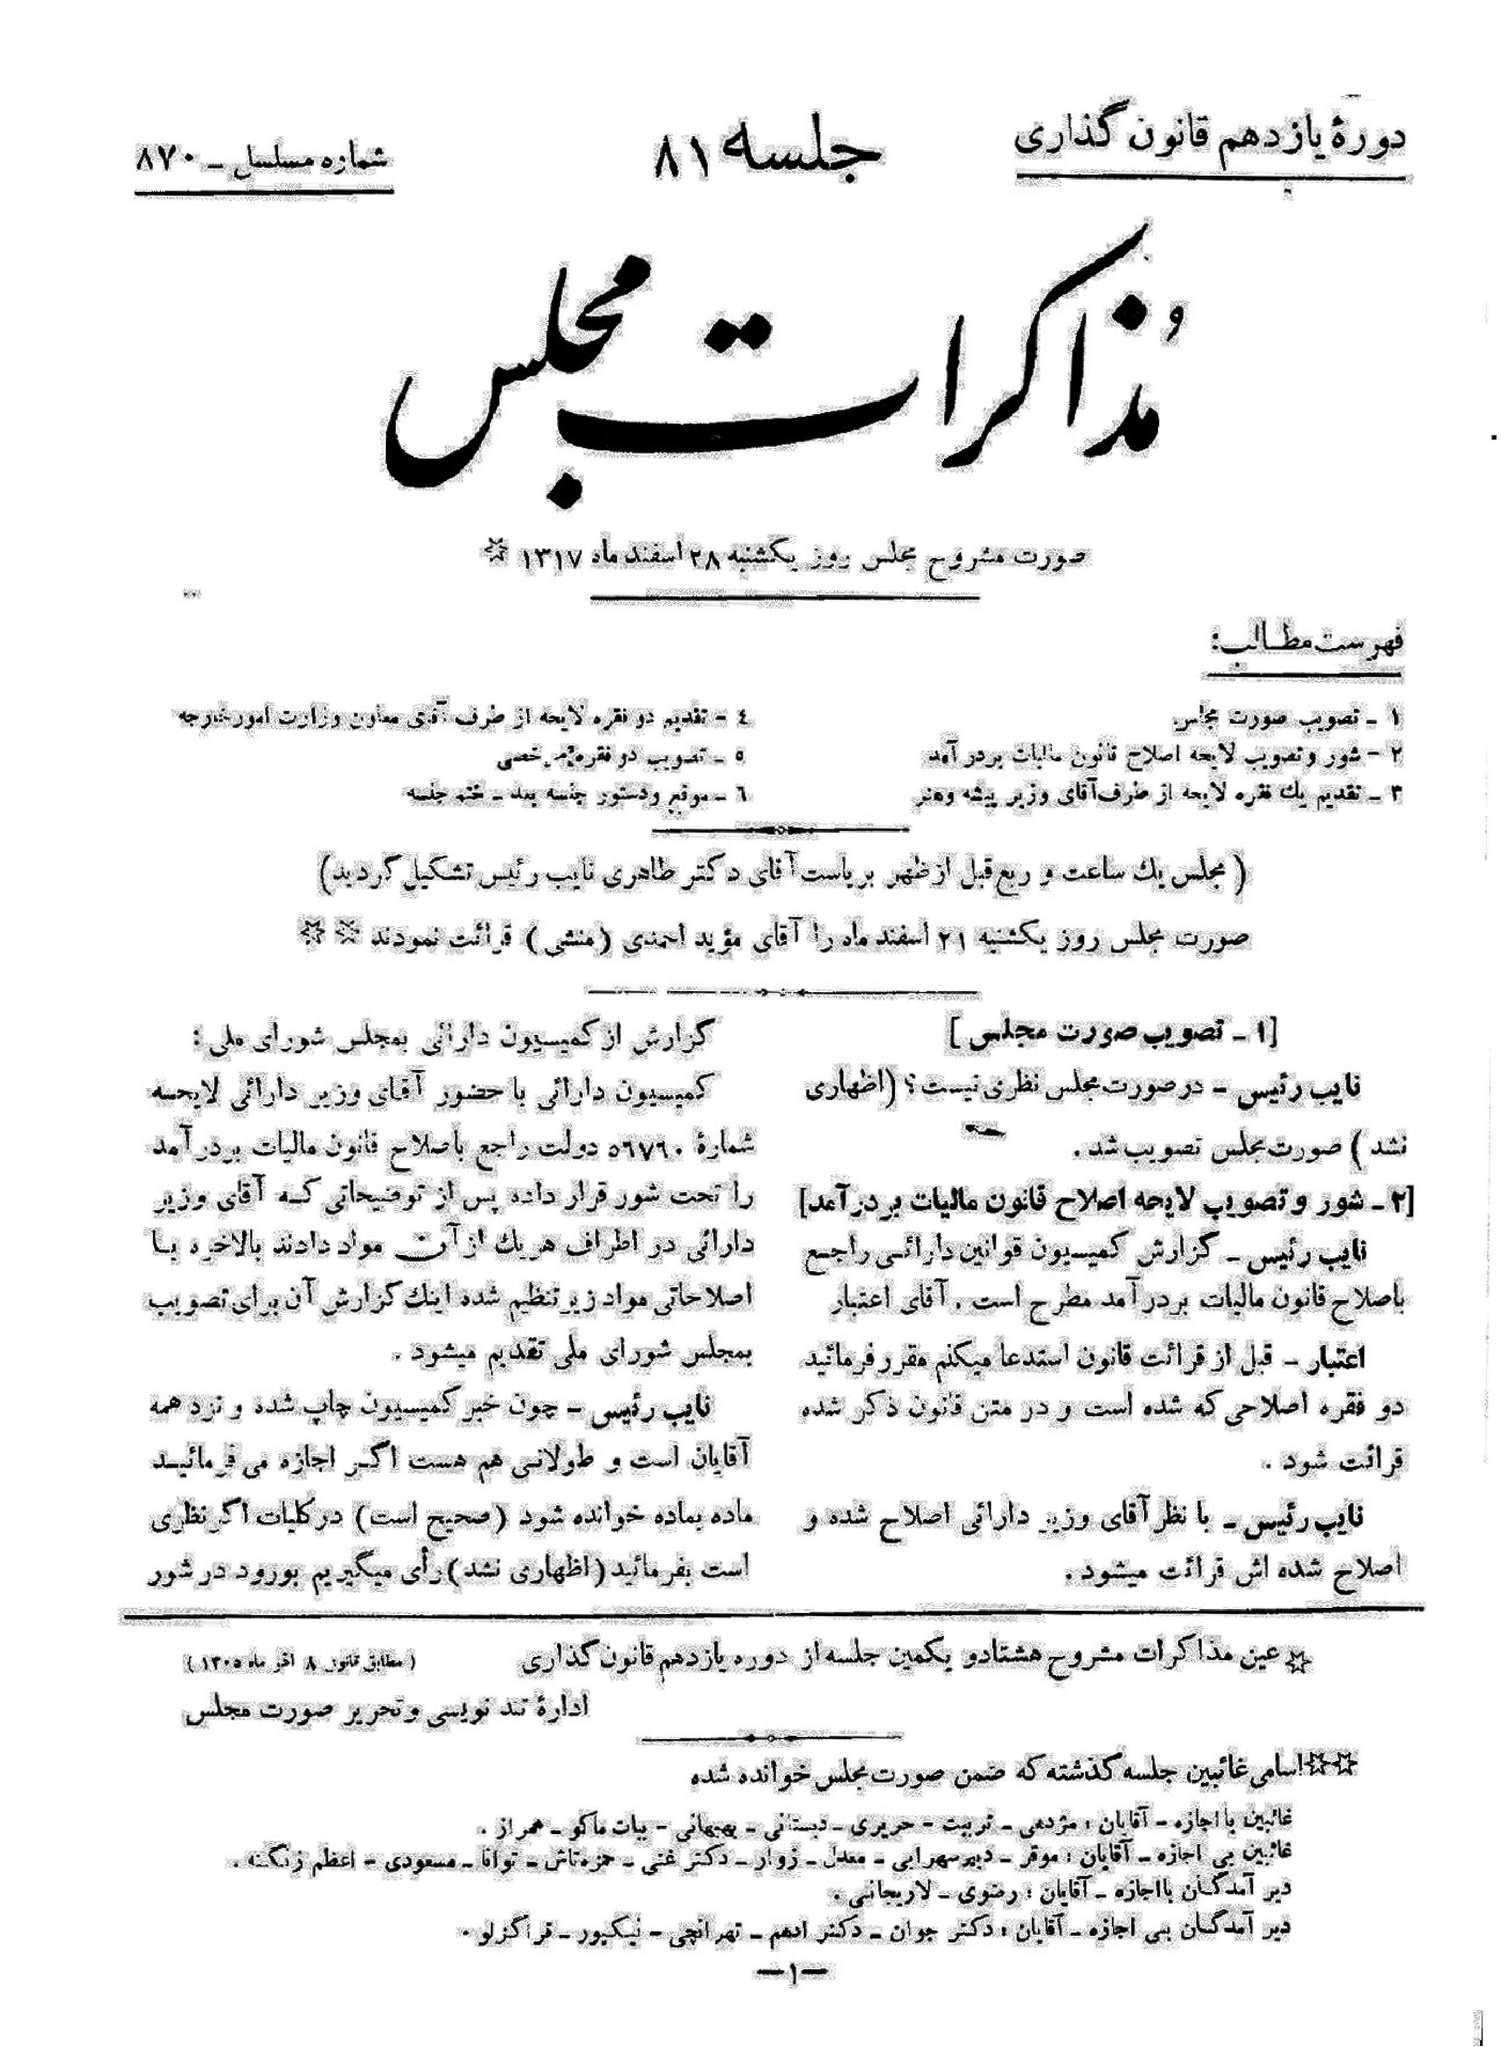 دورهٔ یازدهم قانون گذاری
جلسه ۸۱
شماره مسلسل ـ ۸۷۰
مذاکرات مجلس
صورت مشروح مجلس روز یکشنبه ۲۸ اسفند ماه ۱۳۱۷ ☆
فهرست مطالب:
۱ ـ تصویب صورت مجلس
۲ ـ شور و تصویب لایحه اصلاح قانون مالیات بر درآمد
۳ ـ تقدیم یك فقره لایحه از طرف آقای وزیر پیشه و هنر
٤ ـ تقدیم دو فقره لایحه از طرف آقای معاون وزارت امور خارجه
٥ ـ تصویب دو فقره مرخصی
٦ ـ موقع و دستور جلسه بعد ـ ختم جلسه
( مجلس یك ساعت و ربع قبل از ظهر بریاست آقای دکتر طاهری نایب رئیس تشکیل گردید)
صورت مجلس روز یکشنبه ۲۱ اسفند ماه را آقای مؤید احمدی (منشی) قرائت نمودند ☆☆
[۱ ـ تصویب صورت مجلس]
نایب رئیس ـ در صورت مجلس نظری نیست؟ (اظهاری
نشد) صورت مجلس تصویب شد.
[۲ـ شور و تصویب لایحه اصلاح قانون مالیات بر درآمد]
نایب رئیس ـ گزارش کمیسیون قوانین دارائی راجع
باصلاح قانون مالیات بر درآمد مطرح است. آقای اعتبار
اعتبار ـ قبل از قرائت قانون استدعا میکنم مقرر فرمائید
دو فقره اصلاحی که شده است و در متن قانون ذکر شده
قرائت شود.
نایب رئیس ـ با نظر آقای وزیر دارائی اصلاح شده و
اصلاح شده اش قرائت میشود.
گزارش از کمیسیون دارائی بمجلس شورای ملی:
کمیسیون دارائی با حضور آقای وزیر دارائی لایحه
شمارهٔ ٥٦٧٦۰ دولت راجع باصلاح قانون مالیات بر درآمد
را تحت شور قرار داده پس از توضیحاتی که آقای وزیر
دارائی در اطراف هریك از آن مواد دادند بالاخره با
اصلاحاتی مواد زیر تنظیم شده اینك گزارش آن برای تصویب
بمجلس شورای ملی تقدیم میشود.
نایب رئیس ـ چون خبر کمیسیون چاپ شده و نزد همه
آقایان است و طولانی هم هست اگر اجازه می فرمائید
ماده بماده خوانده شود (صحیح است) در کلیات اگر نظری
است بفرمائید (اظهاری نشد) رأی میگیریم بورود در شور
☆ عین مذاکرات مشروح هشتاد و یکمین جلسه از دوره یازدهم قانون گذاری
(مطابق قانون ۸ آذر ماه ۱۳۰٥)
ادارهٔ تند نویسی و تحریر صورت مجلس
☆☆ اسامی غائبین جلسه گذشته که ضمن صورت مجلس خوانده شده
غائبین با اجازه ـ آقایان: مژدهی ـ تربیت ـ حریری ـ دبستانی ـ بهبهانی ـ بیات ماکو ـ همراز.
غائبین بی اجازه ـ آقایان: موقر ـ دبیر سهرابی ـ معدل ـ زوار ـ دکتر غنی ـ حمزه تاش ـ توانا ـ مسعودی ـ اعظم زنگنه.
دیر آمدگان با اجازه ـ آقایان: رضوی ـ لاریجانی.
دیر آمدگان بی اجازه ـ آقایان: دکتر جوان ـ دکتر ادهم ـ تهرانچی ـ نیکپور ـ قراگزلو.
ـ۱ـ